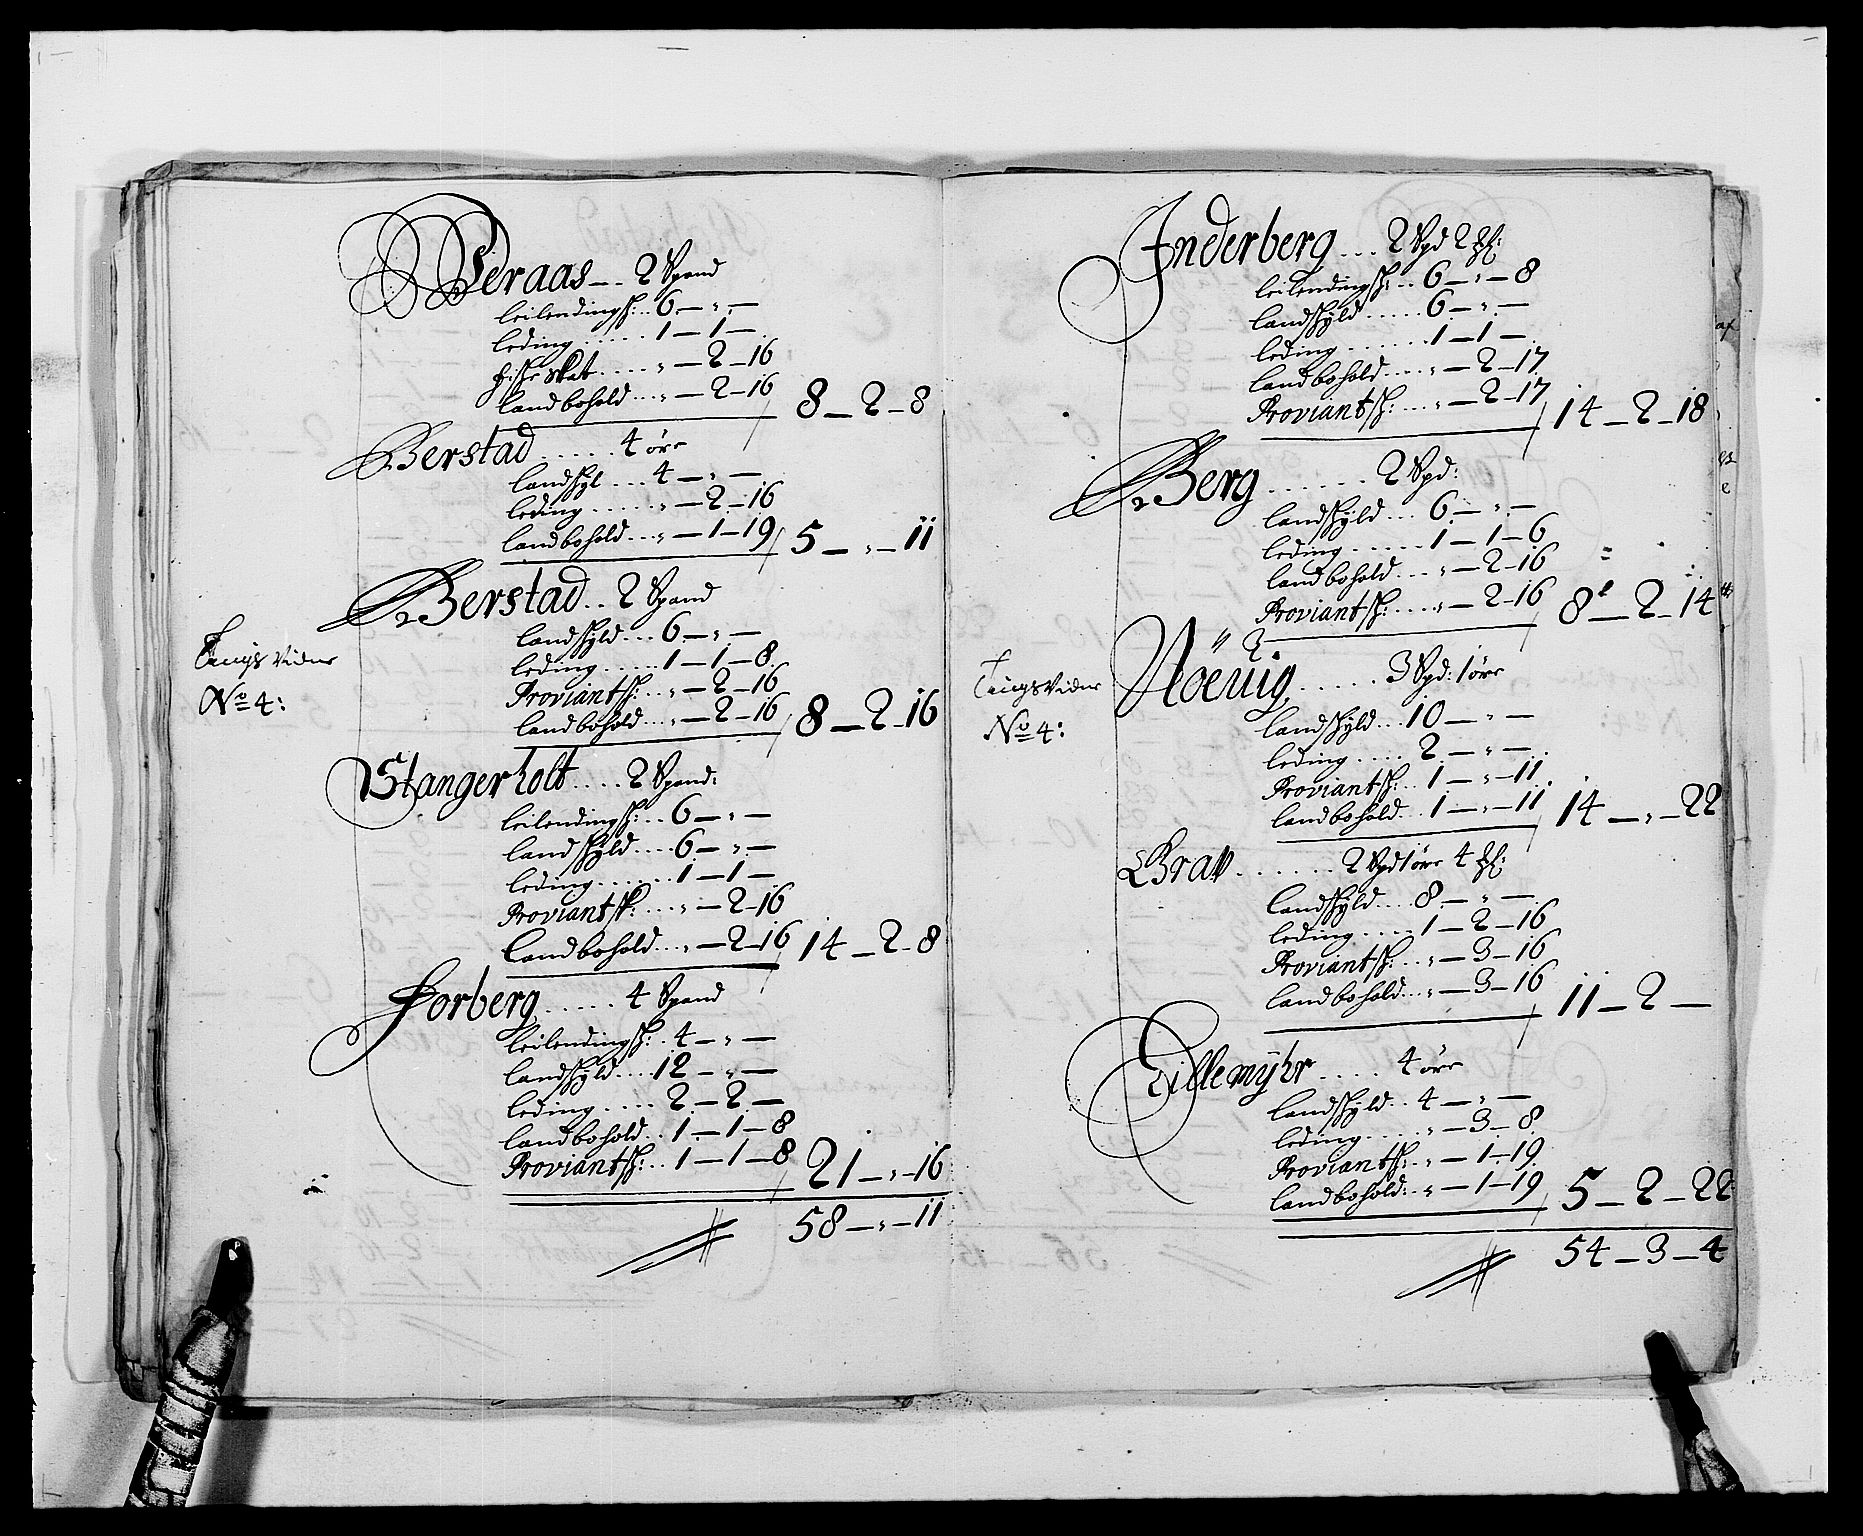 Pedraas . . 2 Spand
leilendingsh: . . 6 — „ —
leding . . . . . 1 — 1 —
fische skat . . . . „ — 2 — 16
landbohold . . . „ — 2 — 16 8 — 2 — 8
Berstad . . . . . 4 öre
landskyl . . . 4 — „ —
leding . . . . . „ — 2 — 16
landbohold . . . „ — 1 — 19 5 — „ — 11
Berstad . . 2 Spand
landskyld . . . 6 — „ —
leding . . . . . 1 — 1 — 8
Proviantsk: . . „ — 2 — 16
landbohold . . . „ — 2 — 16 8 — 2 — 16
Tings Vidne
No 4:
Stangerholt . . . . 2 Spand:
leilendingsk: . . 6 — „ —
landskyld . . . . 6 — „ —
leding . . . . . . 1 — 1 —
Proviantsk: . . . . „ — 2 — 16
Landbohold . . . „ — 2 — 16 14 — 2 — 8
Forberg . . . . . 4 Spand
leilendingsk: . 4 — „ —
landskyld . . . . 12 — „ —
leding . . . . . 2 — 2 —
landbohold . . 1 — 1 — 8
Proviantsk: . . 1 — 1 — 8 21 — „ — 16
58 — „ — 11
Inderberg . . . 2 Spd 2 
leilendingsk: . . 6 — „ — 8
landskyld . . . . . 6 — „ —
leding . . . . . . . 1 — 1 —
landbohold . . . . „ — 2 — 17
Proviantsk: . . . . „ — 2 — 17 14 — 2 — 18
Berg . . . . . . 2 Spd:
landskyld . . . 6 — „ —
leding . . . . . . 1 — 1 — 6
landbohold . . . „ — 2 — 16
Proviantsk: . . . . „ — 2 — 16 8 — 2 — 14
Höeuig . . . . . 3 Spd: 1 öre
Tings Vidne
No 4:
landskyld . . . 10 — „ —
leding . . . . . 2 — „ —
Proviantsk: . . 1 — „ — 11
landbohold . . 1 — „ — 11 14 — „ — 22
Grav . . . . . . 2 Spd 1 öre 4 
landskyld . . . . 8 — „ —
leding . . . . . 1 — 2 — 16
Proviantsk: . . . „ — 3 — 16
landbohold . . . „ — 3 — 16 11 — 2 —
Tillemyhr . . . . 4 öre
landskyld . . 4 — „ —
leding . . . . . „ — 3 — 8
Proviantsk: . . „ — 1 — 19
landbohold: . „ — 1 — 19 5 — 2 — 22
54 — 3 — 4